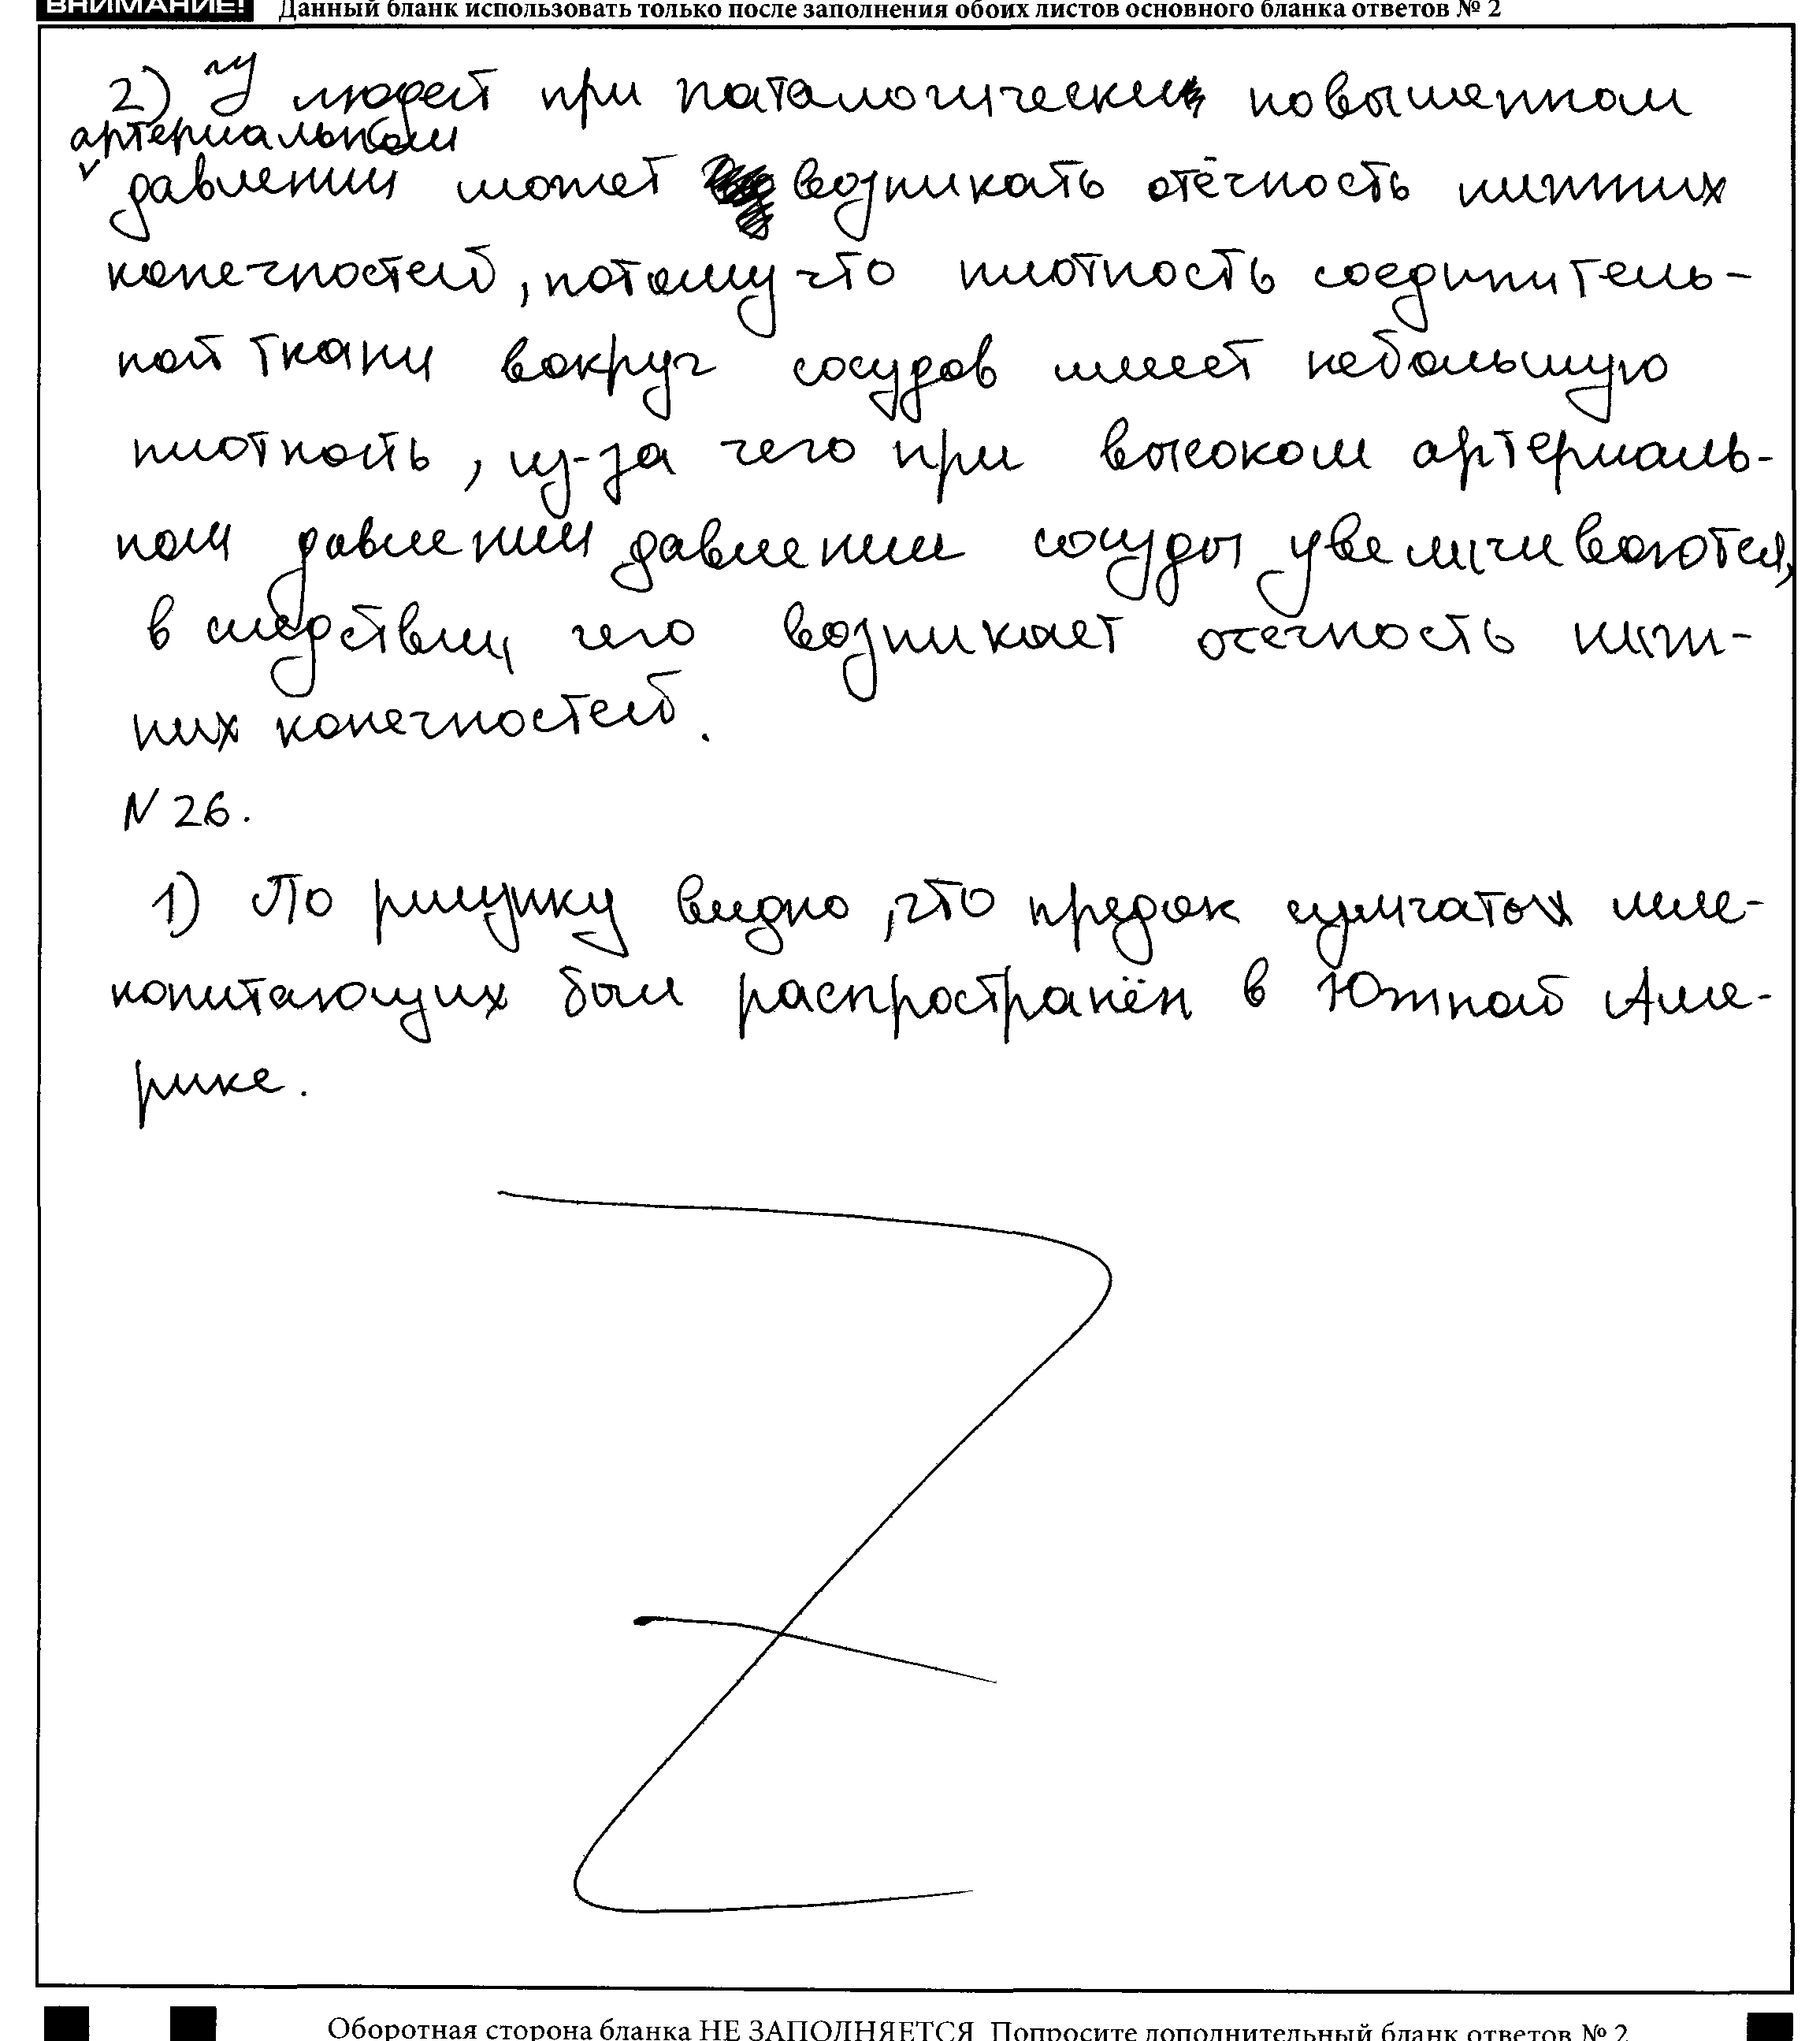 ВНИМАНИЕ! Данный бланк использовать только после заполнения обоих листов основного бланка ответов № 2
2) у людей при паталогически повышенном
артериальном
давлении может возникать отёчность нижних
конечностей, потому что плотность соединитель-
ной ткани вокруг сосудов имеет небольшую
плотность, из-за чего при высоком артериаль-
ном давлении давлении сосуды увеличиваются,
в следствии чего возникает отечность ниж-
них конечностей.
N 26.
1) По рисунку видно, что предок сумчатых мле-
копитающих был распространён в Южной Аме-
рике.
Оборотная сторона бланка НЕ ЗАПОЛНЯЕТСЯ. Попросите дополнительный бланк ответов № 2